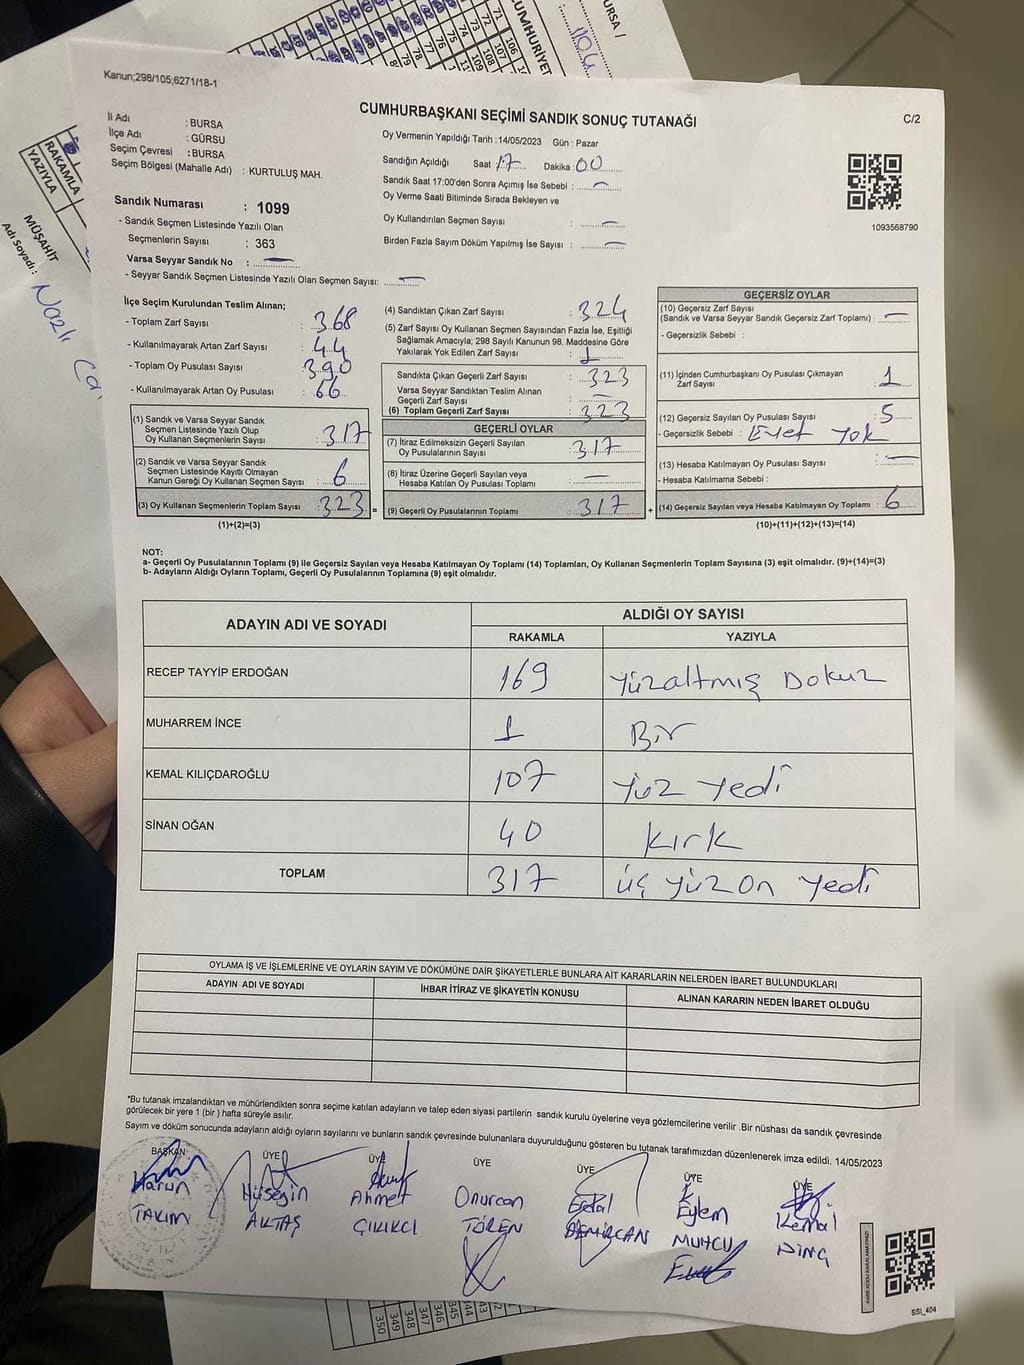 Kanun;298/105;6271/18-1
CUMHURBAŞKANI SEÇİMİ SANDIK SONUÇ TUTANAĞI
C/2
İl Adı : BURSA
İlçe Adı : GÜRSU
Seçim Çevresi : BURSA
Seçim Bölgesi (Mahalle Adı) : KURTULUŞ MAH.
Sandık Numarası : 1099
- Sandık Seçmen Listesinde Yazılı Olan
Seçmenlerin Sayısı : 363
Varsa Seyyar Sandık No : —
- Seyyar Sandık Seçmen Listesinde Yazılı Olan Seçmen Sayısı: —
Oy Vermenin Yapıldığı Tarih : 14/05/2023 Gün : Pazar
Sandığın Açıldığı Saat : 17 Dakika : 00
Sandık Saat 17:00'den Sonra Açımış İse Sebebi : —
Oy Verme Saati Bitiminde Sırada Bekleyen ve
Oy Kullandırılan Seçmen Sayısı : —
Birden Fazla Sayım Döküm Yapılmış İse Sayısı : —
1093568790
İlçe Seçim Kurulundan Teslim Alınan;
- Toplam Zarf Sayısı : 368
- Kullanılmayarak Artan Zarf Sayısı : 44
- Toplam Oy Pusulası Sayısı : 390
- Kullanılmayarak Artan Oy Pusulası : 66
(1) Sandık ve Varsa Seyyar Sandık
Seçmen Listesinde Yazılı Olup
Oy Kullanan Seçmenlerin Sayısı : 317
(2) Sandık ve Varsa Seyyar Sandık
Seçmen Listesinde Kayıtlı Olmayan
Kanun Gereği Oy Kullanan Seçmen Sayısı : 6
(3) Oy Kullanan Seçmenlerin Toplam Sayısı : 323 =
(1)+(2)=(3)
(4) Sandıktan Çıkan Zarf Sayısı : 324
(5) Zarf Sayısı Oy Kullanan Seçmen Sayısından Fazla İse, Eşitliği
Sağlamak Amacıyla; 298 Sayılı Kanunun 98. Maddesine Göre
Yakılarak Yok Edilen Zarf Sayısı : 1
Sandıkta Çıkan Geçerli Zarf Sayısı : 323
Varsa Seyyar Sandıktan Teslim Alınan
Geçerli Zarf Sayısı : —
(6) Toplam Geçerli Zarf Sayısı : 323
GEÇERLİ OYLAR
(7) İtiraz Edilmeksizin Geçerli Sayılan
Oy Pusulalarının Sayısı : 317
(8) İtiraz Üzerine Geçerli Sayılan veya
Hesaba Katılan Oy Pusulası Toplamı : —
(9) Geçerli Oy Pusulalarının Toplamı : 317 +
GEÇERSİZ OYLAR
(10) Geçersiz Zarf Sayısı
(Sandık ve Varsa Seyyar Sandık Geçersiz Zarf Toplamı) : —
- Geçersizlik Sebebi :
(11) İçinden Cumhurbaşkanı Oy Pusulası Çıkmayan
Zarf Sayısı : 1
(12) Geçersiz Sayılan Oy Pusulası Sayısı : 5
- Geçersizlik Sebebi : Evet Yok
(13) Hesaba Katılmayan Oy Pusulası Sayısı : —
- Hesaba Katılmama Sebebi :
(14) Geçersiz Sayılan veya Hesaba Katılmayan Oy Toplamı : 6
(10)+(11)+(12)+(13)=(14)
NOT:
a- Geçerli Oy Pusulalarının Toplamı (9) ile Geçersiz Sayılan veya Hesaba Katılmayan Oy Toplamı (14) Toplamları, Oy Kullanan Seçmenlerin Toplam Sayısına (3) eşit olmalıdır. (9)+(14)=(3)
b- Adayların Aldığı Oyların Toplamı, Geçerli Oy Pusulalarının Toplamına (9) eşit olmalıdır.
ADAYIN ADI VE SOYADI ALDIĞI OY SAYISI
RAKAMLA YAZIYLA
RECEP TAYYİP ERDOĞAN 169 Yüzaltmış Dokuz
MUHARREM İNCE 1 Bir
KEMAL KILIÇDAROĞLU 107 Yüz Yedi
SİNAN OĞAN 40 Kırk
TOPLAM 317 Üç Yüz on Yedi
OYLAMA İŞ VE İŞLEMLERİNE VE OYLARIN SAYIM VE DÖKÜMÜNE DAİR ŞİKAYETLERLE BUNLARA AİT KARARLARIN NELERDEN İBARET BULUNDUKLARI
ADAYIN ADI VE SOYADI İHBAR İTİRAZ VE ŞİKAYETİN KONUSU ALINAN KARARIN NEDEN İBARET OLDUĞU
*Bu tutanak imzalandıktan ve mühürlendikten sonra seçime katılan adayların ve talep eden siyasi partilerin sandık kurulu üyelerine veya gözlemcilerine verilir .Bir nüshası da sandık çevresinde
görülecek bir yere 1 (bir ) hafta süreyle asılır.
Sayım ve döküm sonucunda adayların aldığı oyların sayılarını ve bunların sandık çevresinde bulunanlara duyurulduğunu gösteren bu tutanak tarafımızdan düzenlenerek imza edildi. 14/05/2023
BAŞKAN ÜYE ÜYE ÜYE ÜYE ÜYE ÜYE
Harun Hüseyin Ahmet Onurcan Erdal Eylem Kemal
TAKIM AKTAŞ ÇILIKCI TÖREN DEMİRCAN MUHCU DİNÇ
SSİ_404
RAKAMLA
YAZIYLA
MÜŞAHİT
Adı Soyadı : Nazlı
CUMHURİYET
BURSA /